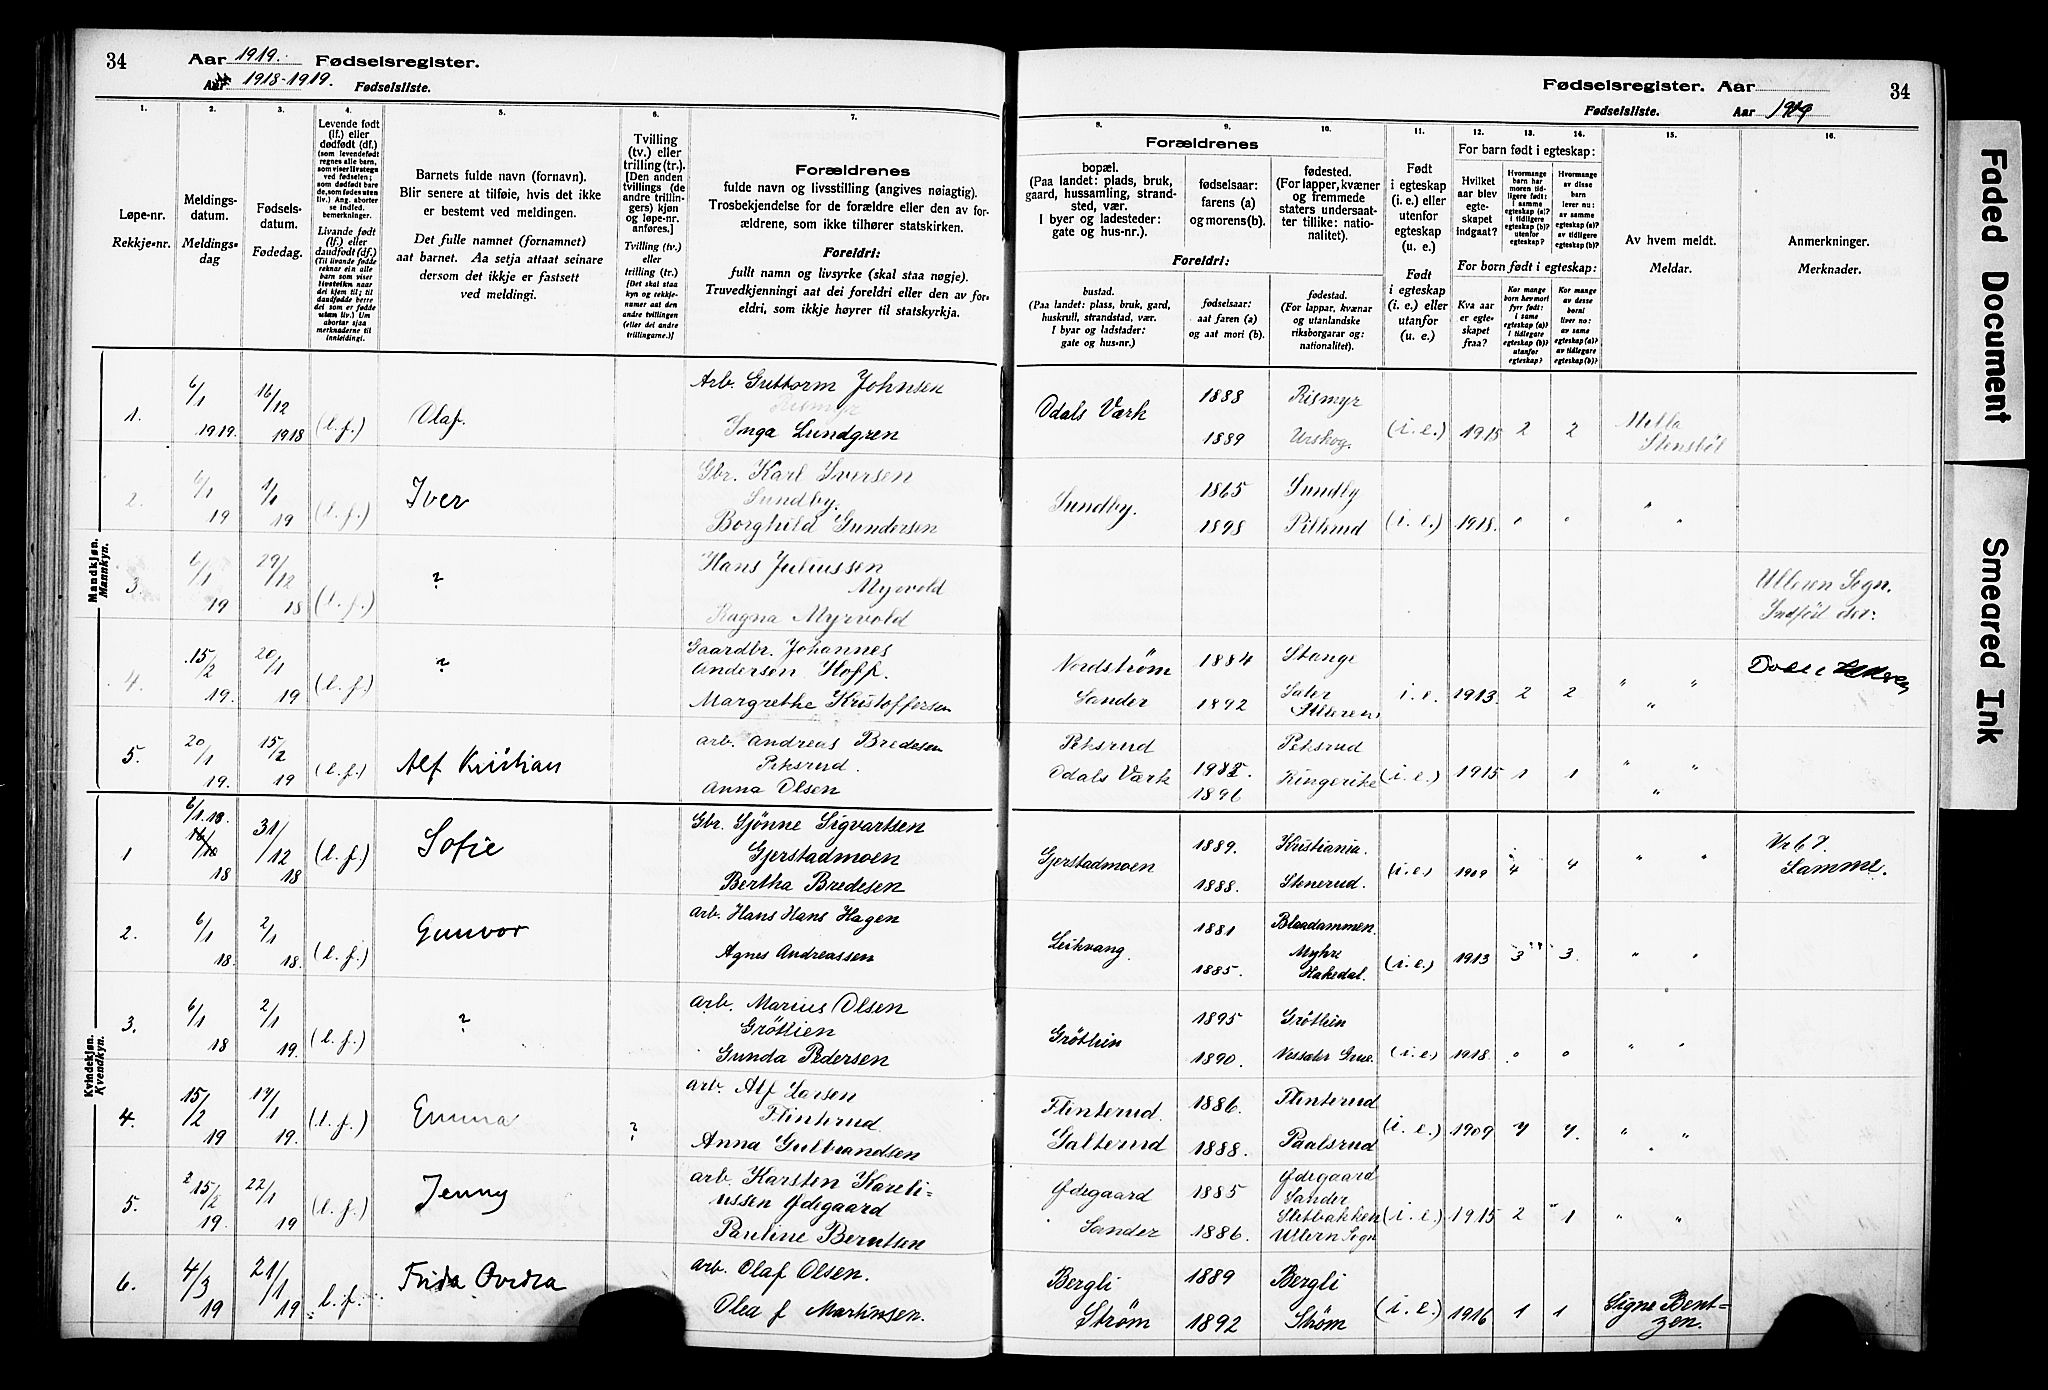 34 Aar 1919. Fødselsregister.
Aar 1918-1919. Fødselsliste.
Fødselsregister. Aar 34
Fødselsliste. Aar 1919
1. 2. 3. 4. 5. 6. 7. 8. 9. 10. 11. 12. 13. 14. 15. 16.
Løpe-nr.
Rekkje-nr.
Meldings-
datum.
Meldings-
dag
Fødsels-
datum.
Fødedag.
Levende født
(lf.) eller
dødfødt (df.)
(som levendefødt
regnes alle barn,
som viser livstegn
ved fødselen;
som dødfødt bare
de, som fødes uten
liv.) Ang. aborter
se indled.
bemerkninger.
Livande født
(lf.) eller
daudfødt (df.)
(Til livande fødde
reknar ein alle
barn som viser
livsteikn naar
dei kjem til; til
daudfødde berre
dei som er fødde
utan liv.) Um
abortar sjaa
merknaderne til
innleiding.
Barnets fulde navn (fornavn).
Blir senere at tilføie, hvis det ikke
er bestemt ved meldingen.
Det fulle namnet (fornamnet)
aat barnet. Aa setja attaat seinare
dersom det ikkje er fastsett
ved meldingi.
Tvilling
(tv.) eller
trilling (tr.).
[Den anden
tvillings (de
andre trillin-
gers) kjøn
og løpe-nr.
anføres.]
Tvilling (tv.)
eller
trilling (tr.)
[Det skal staa
kyn og rekkje-
numer aat den
andre tvillingen
(eller dei andre
trillingarne.)]
Forældrenes
fulde navn og livsstilling (angives nøiagtig).
Trosbekjendelse for de forældre eller den av for-
ældrene, som ikke tilhører statskirken.
Foreldri:
fullt namn og livsyrke (skal staa nøgje).
Truvedkjenningi aat dei foreldri eller den av for-
eldri, som ikkje høyrer til statskyrkja.
Forældrenes
bopæl.
(Paa landet: plads, bruk,
gaard, hussamling, strand-
sted, vær.
I byer og ladesteder:
gate og hus-nr.).
fødselsaar:
farens (a)
og morens(b).
fødested.
(For lapper, kvæner
og fremmede
staters undersaat-
ter tillike: natio-
nalitet).
Foreldri:
bustad.
(Paa landet: plass, bruk, gard,
huskrull, strandstad, vær.
I byar og ladstader:
gate og hus-nr.)
fødselsaar:
aat faren (a)
og aat mori (b).
fødestad.
(For lappar, kvænar
og utanlandske
riksborgarar og:
nationalitet).
Født
i egteskap
(i. e.) eller
utenfor
egteskap
(u. e.).
Født
i egteskap
(i. e.) eller
utanfor
(u. e.).
For barn født i egteskap:
Hvilket
aar blev
egte-
skapet
indgaat?
Hvormange
barn har
moren tid-
ligere født:
I samme
egteskap (a)?
I tidligere
egteskap (b)?
utenfor
egteskap?
Hvormange
av disse
barn
lever nu:
av samme
egteskap (a)?
av tidligere
egteskap (b)?
For born født i egteskap:
Kva aar
er egte-
skapet
fraa?
Kor mange
born hev mori
fyrr født:
I same
egteskap (a)?
I tidlegare
egteskap (b)?
utanfor
egteskap?
Kor mange
av desse
born
liver no:
av same
egteskap (a)?
av tidlegare
egteskap (b)?
Av hvem meldt.
Meldar.
Anmerkninger.
Merknader.
Mandkjøn.
Mannkyn.
1. 6/1 1919. 16/12 1918 (l.f.) Olaf. Arb. Guttorm Johnsen
Rismyr
Inga Lundgren
Odals Værk 1888 Rismyr
1889 Urskog. (i.e.) 1918 2 2
2 6/1 19 1/1 19 (l.f.) Iver Gbr. Karl Iversen
Sundby.
Borghild Gundersen
Sundby. 1865 Sundby
1898 (i.e.) 1918. " "
3 6/1 19 29/12 18 (l.f.) ? Hans Juliussen
Myrvold
Ragna Myrvold
Ulleren Sogn.
Indført der.
4. 15/2 19. 20/1 19 (l.f.) ? Gaardbr. Johannes
Andersen Hoff.
Margrethe Kristoffersen
Nordstrøm 1884 Stange
Sander 1892 i.e. 1913. 2 2 " "
Ulleren
5. 20/1 19. 15/2 19 (l.f.) Alf Kristian arb. Andreas Bredesen
Peksrud.
Anna Olsen
Peksrud Peksrud
Odals Værk 1896 Ringerike (i.e.) 1915 1 1 " "
Kvindekjøn.
Kvendkyn.
1 6/1.18. 18 31/12 18 (l.f.) Sofie Gbr. Gjønne Sigvartsen
Gjerstadmoen
Bertha Bredesen
Gjerstadmoen 1889. Kristiania.
1888. Stenerud. (i.e.) 1909 4 4 " "
Samme.
2. 6/1 18. 2/1 18. (l.f.) Gunvor arb. Hans Hans Hagen
Agnes Andreassen
Leikvang 1881 Blaadammen.
1885. Myhre
Hakedal. (i.e.) 1913 3 3. " "
3. 6/1 18 2/1 19. (l.f.) ? arb. Marius Olsen
Grøtlien
Gunda Pedersen
Grøtlien 1895 Grøtlien
1890. (i.e) 1918. " " " "
4. 15/2 19 17/1 19. (l.f.) Emma ? arb. Alf Larsen
Flinterud.
Anna Gulbrandsen
Flinterud. 1886. Flinterud
Galterud 1888. Paalsrud (i.e.) 1909 7 7. " "
5. 15/2 19. 22/1 19 (l.f.) Jenny arb. Karsten Kareli-
ussen Ødegaard
Pauline Berntsen
Ødegaard 1885 Ødegaard
Sander
Sander 1886. Sletbakken
Ullern Sogn (i.e.) 1915 2 1 " "
6. 4/3 19 21/1 19 l.f. Frida Ovidia arb. Olaf Olsen.
Olea f Martinsen.
Bergli 1889 Bergli
Strøm 1892 Strøm (i.e.) 1916 1 1 Signe Bent-
zen.
Faded Document
Smeared Ink